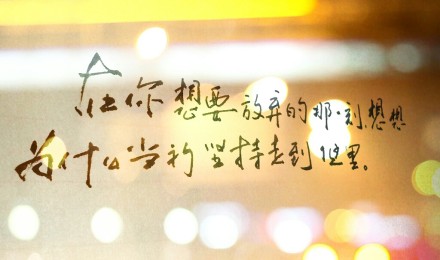 在你想要放弃的那一刻,想想
为什么当初坚持走到这里。